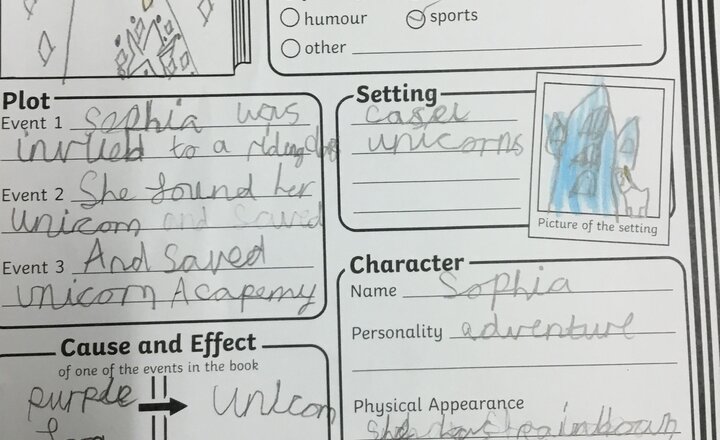 humour
sports
other
Plot
Event 1 Sophia was
invited to a riding
Event 2 She found her
Unicorn and saved
Event 3 And saved
Unicorn Acapemy
Setting
casel
unicorns
Picture of the setting
Character
Name Sophia
Personality adventure
Physical Appearance
She has
Cause and Effect
of one of the events in the book
purple
Unicorn